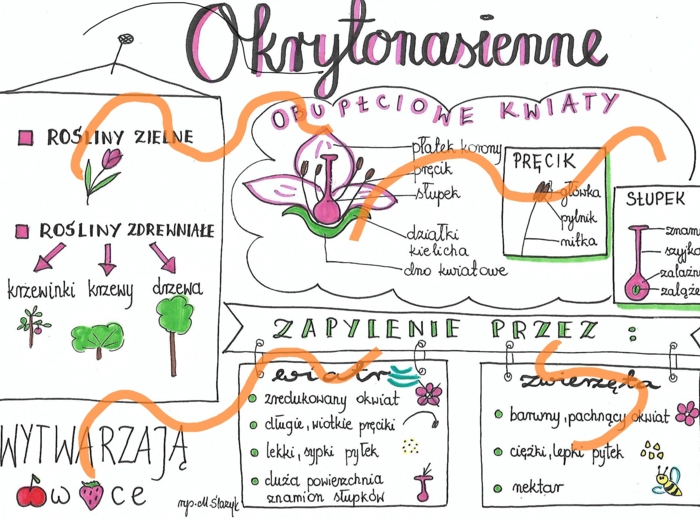 Okrytonasienne
OBUPŁCIOWE KWIATY
ROŚLINY ZIELNE
ROŚLINY ZDREWNIAŁE
krzewinki krzewy drzewa
płatek korony
pręcik
słupek
działki
kielicha
dno kwiatowe
PRĘCIK
główka
pylnik
nitka
SŁUPEK
znam
szyjka
zalążn
zaląże
ZAPYLENIE PRZEZ:
wiatr
zredukowany okwiat
długie, wiotkie pręciki
lekki, sypki pyłek
duża powierzchnia
znamion słupków
zwierzęta
barwny, pachnący okwiat
ciężki, lepki pyłek
nektar
WYTWARZAJĄ
owoce
rys. M Ślazyk